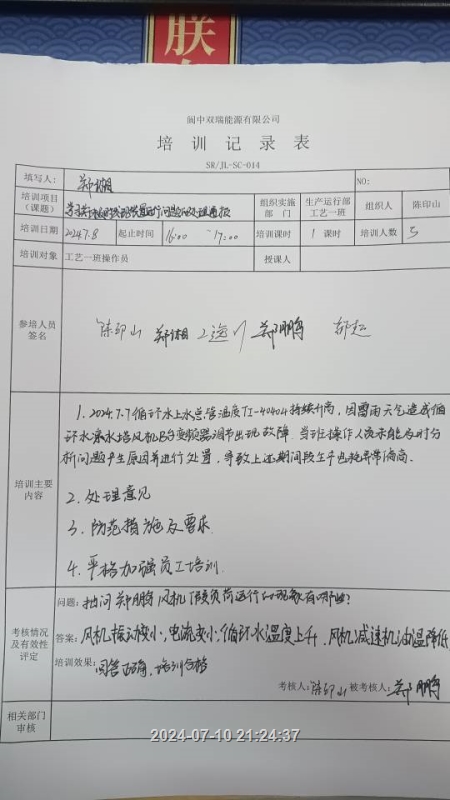 朕
阆中双瑞能源有限公司
培训记录表
SR/JL-SC-014
填写人: 郑湘 NO:
培训项目(课题) 组织实施部门 生产运行部工艺一班 组织人 陈印山
培训日期 2024.7.8 起止时间 16:00 ~17:00 培训课时 1 课时 培训人数 5
培训对象 工艺一班操作员 授课人
参培人员签名 陈印山 郑湘 王逸川 郑鹏 郝起
培训主要内容
1. 2024.7.7循环水上水总管温度TI-40404持续升高, 因雷雨天气造成循
环水凉水塔风机B台变频器调节出现故障. 当班操作人员未能及时分
析问题产生原因并进行处置, 导致上述期间段生产电耗异常偏高.
2. 处理意见
3. 防范措施及要求
4. 严格加强员工培训.
考核情况及有效性评定
问题: 抽问郑鹏风机假负荷运行的现象有哪些?
答案: 风机振动变小, 电流变小, 循环水温度上升, 风机减速机油温降低
培训效果: 回答正确, 培训合格
考核人: 陈印山 被考核人: 郑鹏
相关部门审核
2024-07-10 21:24:37